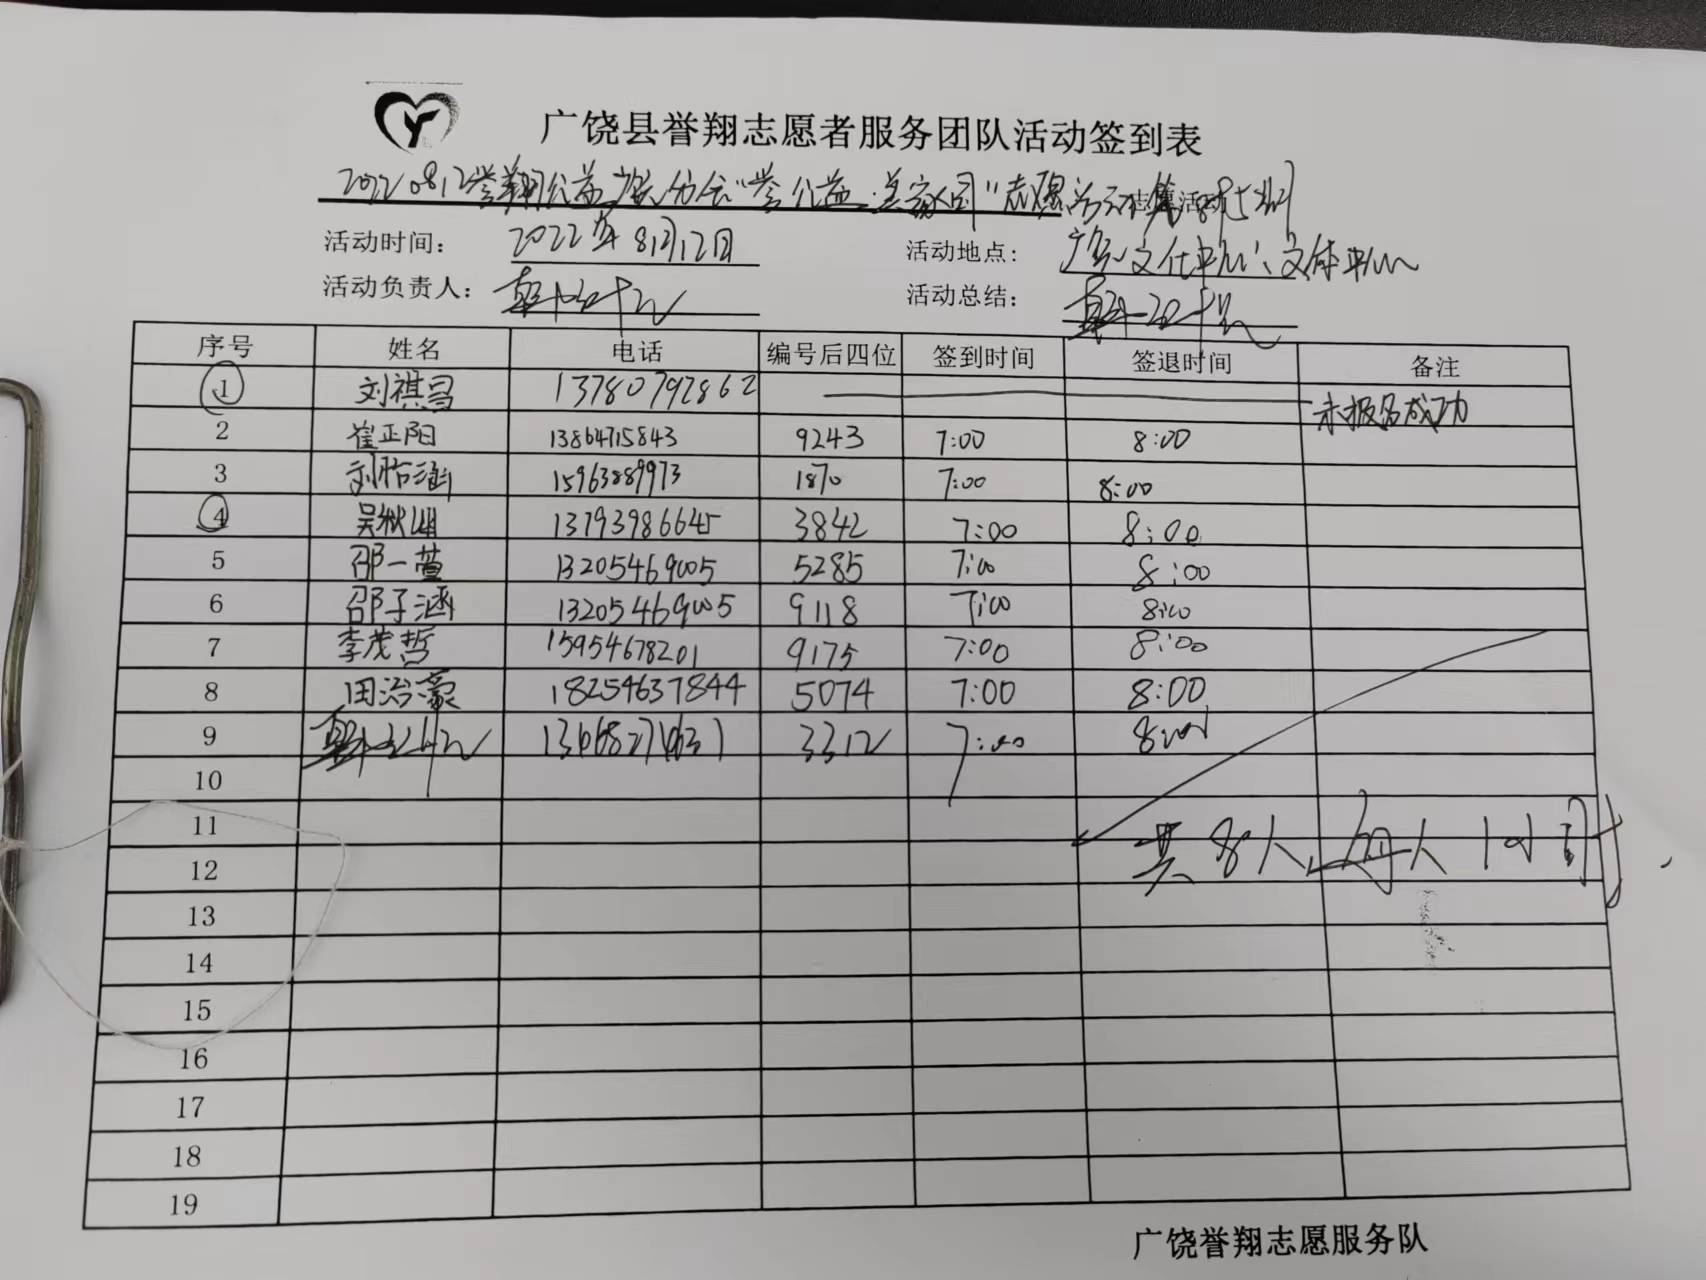 广饶县誉翔志愿者服务团队活动签到表
20220812誉翔公益 分会"誉公益 志愿 活动
活动时间： 2022年8月12日 活动地点： 文化中心、文体中心
活动负责人： 活动总结：
序号 姓名 电话 编号后四位 签到时间 签退时间 备注
1 刘祺昌 13780792862 未报名成功
2 崔正阳 13864715843 9243 7:00 8:00
3 刘怡涵 15963889973 1870 7:00 8:00
4 吴 13793986645 3842 7:00 8:00
5 邵一萱 13205469005 5285 7:00 8:00
6 邵子涵 13205469005 9118 7:00 8:00
7 李茂哲 15954678201 9175 7:00 8:00
8 田治濠 18254637844 5074 7:00 8:00
9 3312 7:00 8:00
10
11
共8人，每人1小时
12
13
14
15
16
17
18
19
广饶誉翔志愿服务队